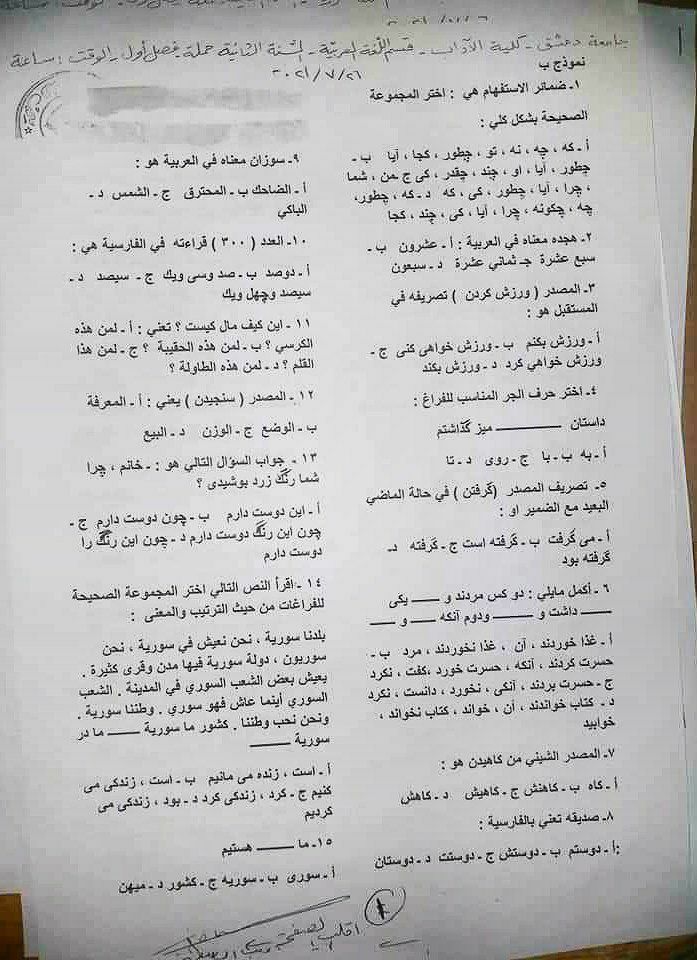 جامعة دمشق - كلية الآداب - قسم اللغة العربية - السنة الثانية حملة - فصل أول - الوقت : ساعة
٢٠٢١/٧/٢٦
نموذج ب
١ـ ضمائر الاستفهام هي : اختر المجموعة
الصحيحة بشكل كلي :
أ ـ كه ، چه ، نه ، تو ، چطور ، كجا ، آيا ب ـ
چطور ، آيا ، او ، چند ، چقدر ، كى ج ـ من ، شما
، چرا ، آيا ، چطور ، كى ، كه د ـ كه ، چطور،
چه ، چكونه ، چرا ، آيا ، كى ، چند ، كجا
٢ـ هجده معناه في العربية : أ ـ عشرون ب ـ
سبع عشرة جـ ثماني عشرة د ـ سبعون
٣ـ المصدر ( ورزش كردن ) تصريفه في
المستقبل هو :
أ ـ ورزش بكنم ب ـ ورزش خواهى كنى ج ـ
ورزش خواهي كرد د ـ ورزش بكند
٤ـ اختر حرف الجر المناسب للفراغ :
داستان ـــــــــ ميز گذاشتم
أ ـ به ب ـ با ج ـ روى د ـ تا
٥ـ تصريف المصدر (گرفتن ) في حالة الماضي
البعيد مع الضمير او :
أ ـ مى گرفت ب ـ گرفته است ج ـ گرفته د ـ
گرفته بود
٦ ـ أكمل مايلي : دو كس مردند و ــــ يكى
ــــ داشت و ــــــ ودوم آنكه ــــ و ــــ
أ ـ غذا خوردند ، آن ، غذا نخوردند ، مرد ب ـ
حسرت كردند ، آنكه ، حسرت خورد ،كفت ، نكرد
ج ـ حسرت بردند ، آنكى ، نخورد ، دانست ، نكرد
د ـ كتاب خواندند ، أن ، خواند ، كتاب نخواند ،
خوابيد
٧ـ المصدر الشيني من كاهيدن هو :
أ ـ كاه ب ـ كاهنش ج ـ كاهيش د ـ كاهش
٨ـ صديقه تعني بالفارسية :
أ ـ دوستم ب ـ دوستش ج ـ دوستت د ـ دوستان:
٩ـ سوزان معناه في العربية هو :
أ ـ الضاحك ب ـ المحترق ج ـ الشمس د ـ
الباكي
١٠ـ العدد ( ٣٠٠ ) قراءته في الفارسية هي :
أ ـ دوصد ب ـ صد وسى ويك ج ـ سيصد د ـ
سيصد وچهل ويك
١١ ـ اين كيف مال كيست ؟ تعني : أ ـ لمن هذه
الكرسي ؟ ب ـ لمن هذه الحقيبة ؟ ج ـ لمن هذا
القلم ؟ د ـ لمن هذه الطاولة ؟
١٢ ـ المصدر ( سنجيدن ) يعني : أ ـ المعرفة
ب ـ الوضع ج ـ الوزن د ـ البيع
١٣ ـ جواب السؤال التالي هو : ـ خانم ، چرا
شما رنگ زرد پوشيدى ؟
أ ـ اين دوست دارم ب ـ چون دوست دارم ج ـ
چون اين رنگ دوست دارم د ـ چون اين رنگ را
دوست دارم
١٤ ـ اقرأ النص التالي اختر المجموعة الصحيحة
للفراغات من حيث الترتيب والمعنى :
بلدنا سورية ، نحن نعيش في سورية ، نحن
سوريون ، دولة سورية فيها مدن وقرى كثيرة .
يعيش بعض الشعب السوري في المدينة . الشعب
السوري أينما عاش فهو سوري . وطننا سورية .
ونحن نحب وطننا . كشور ما سورية ــــ ما در
سورية ــــــ
أ ـ است ، زنده مى مانيم ب ـ است ، زندكى مى
كنيم ج ـ كرد ، زندكى كرد د ـ بود ، زندكى مى
كرديم
١٥ـ ما ــــــ هستيم
أ ـ سورى ب ـ سوريه ج ـ كشور د ـ ميهن
١
اقلب الصفحة